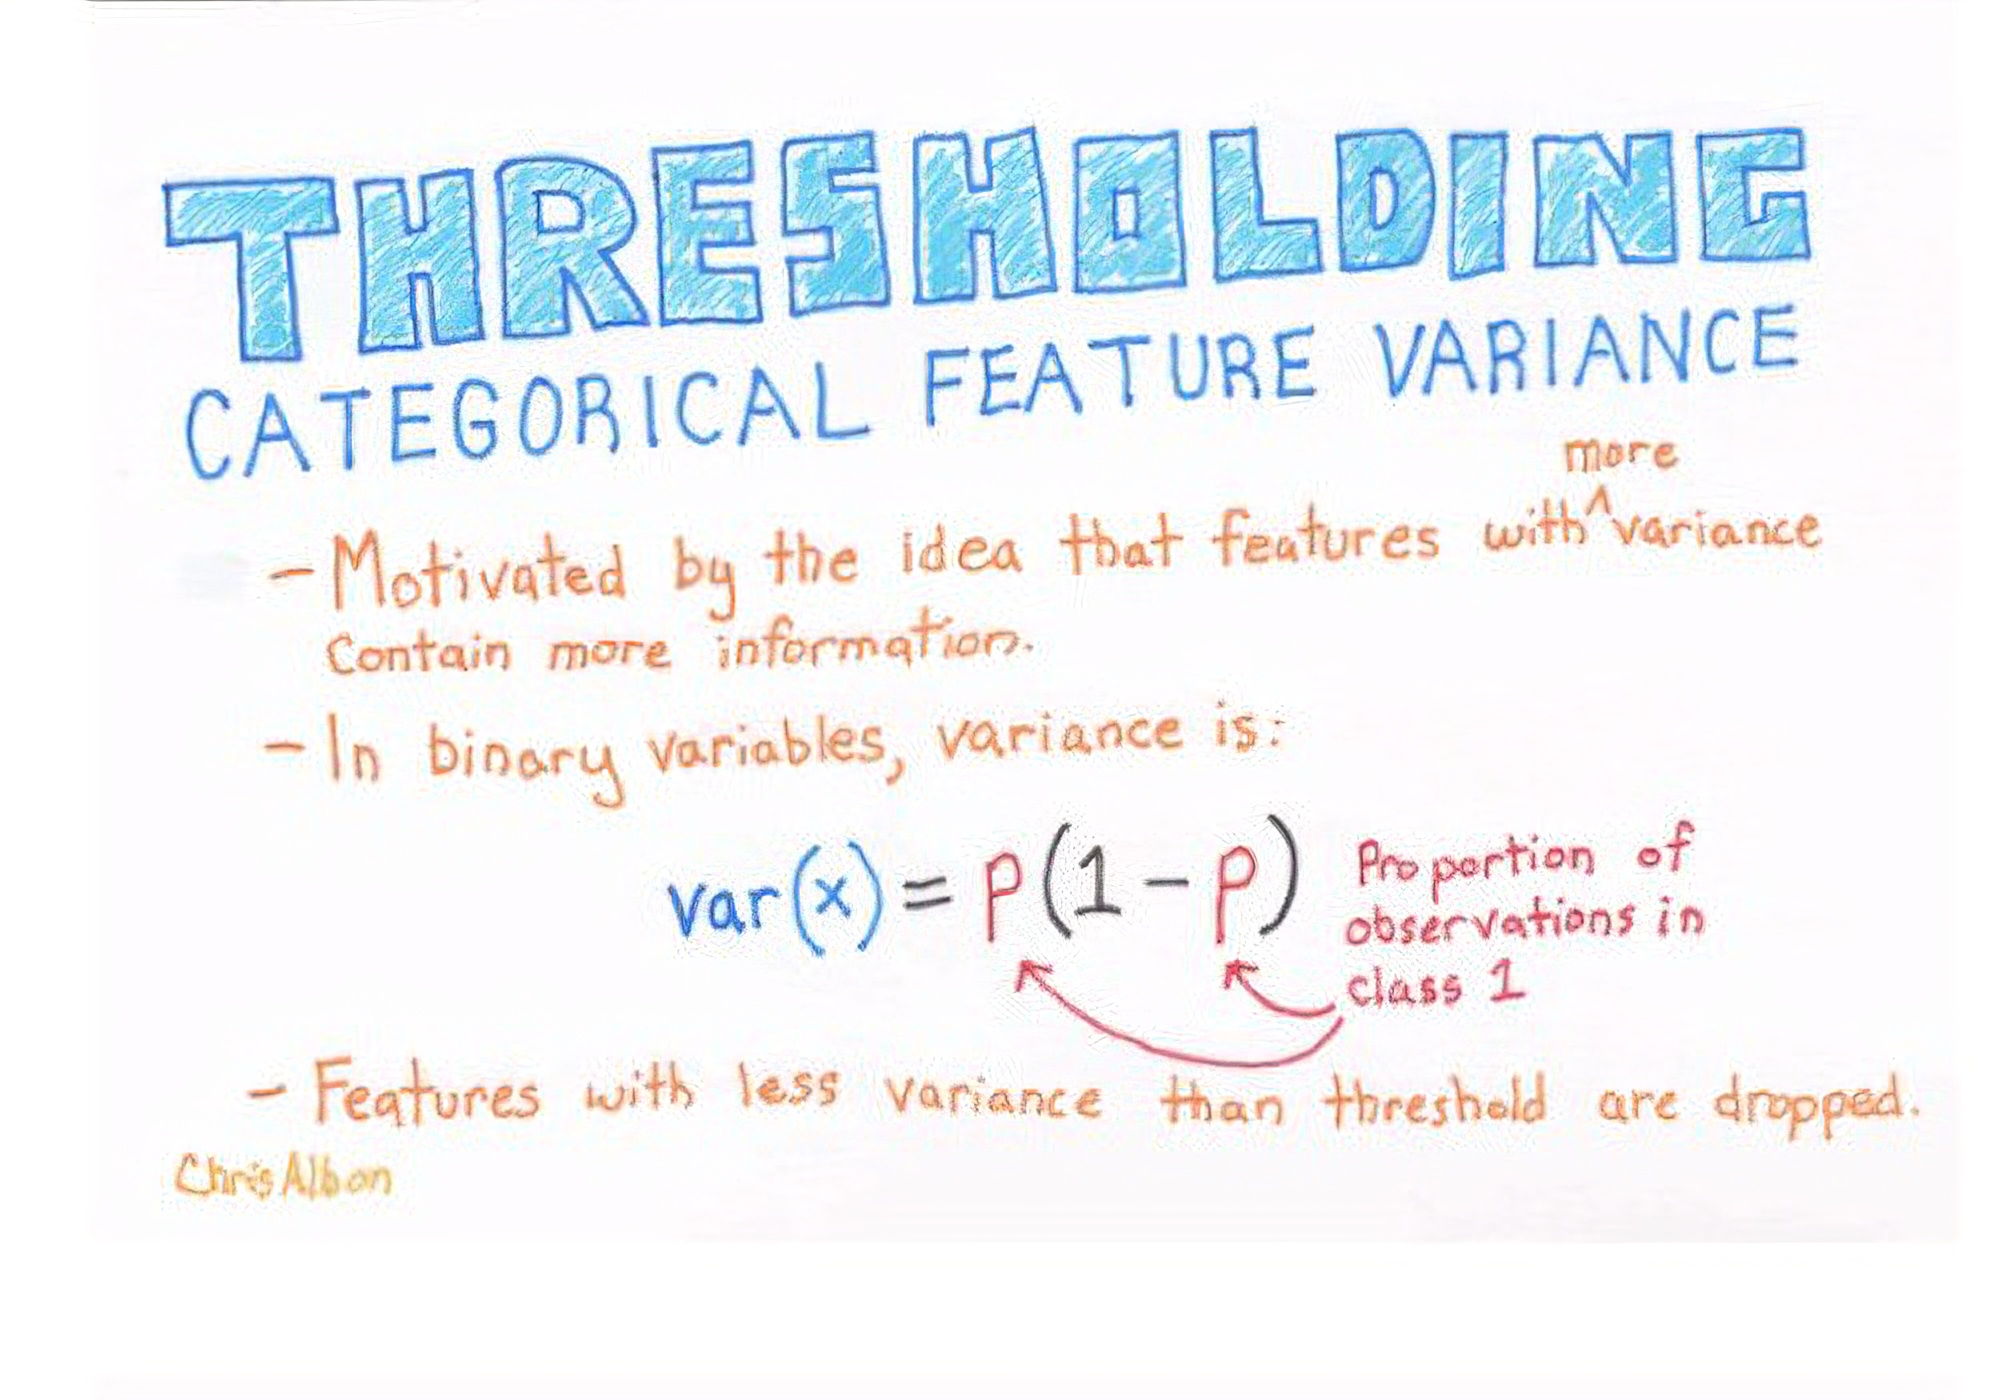 THRESHOLDING
CATEGORICAL FEATURE VARIANCE
more
- Motivated by the idea that features with^variance
Contain more information.
- In binary variables, variance is:
var(x) = P(1-P)
Proportion of
observations in
class 1
- Features with less variance than threshold are dropped.
Chris Albon